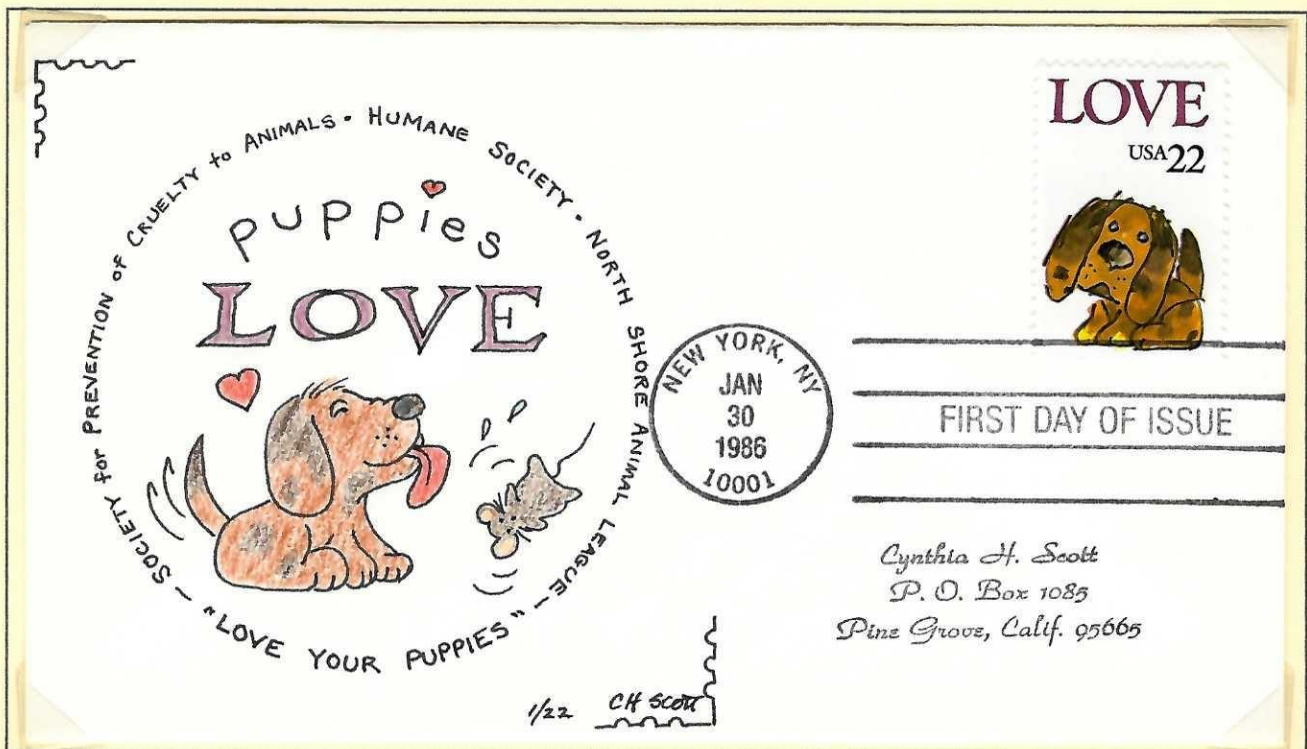 SOCIETY for PREVENTION of CRUELTY to ANIMALS • HUMANE SOCIETY • NORTH SHORE ANIMAL LEAGUE – "LOVE YOUR PUPPIES" –
puppies
LOVE
1/22 CH SCOTT
LOVE
USA22
NEW YORK, NY
JAN
30
1986
10001
FIRST DAY OF ISSUE
Cynthia H. Scott
P. O. Box 1085
Pine Grove, Calif. 95665